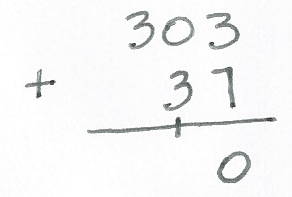 303
+ 37
1
0